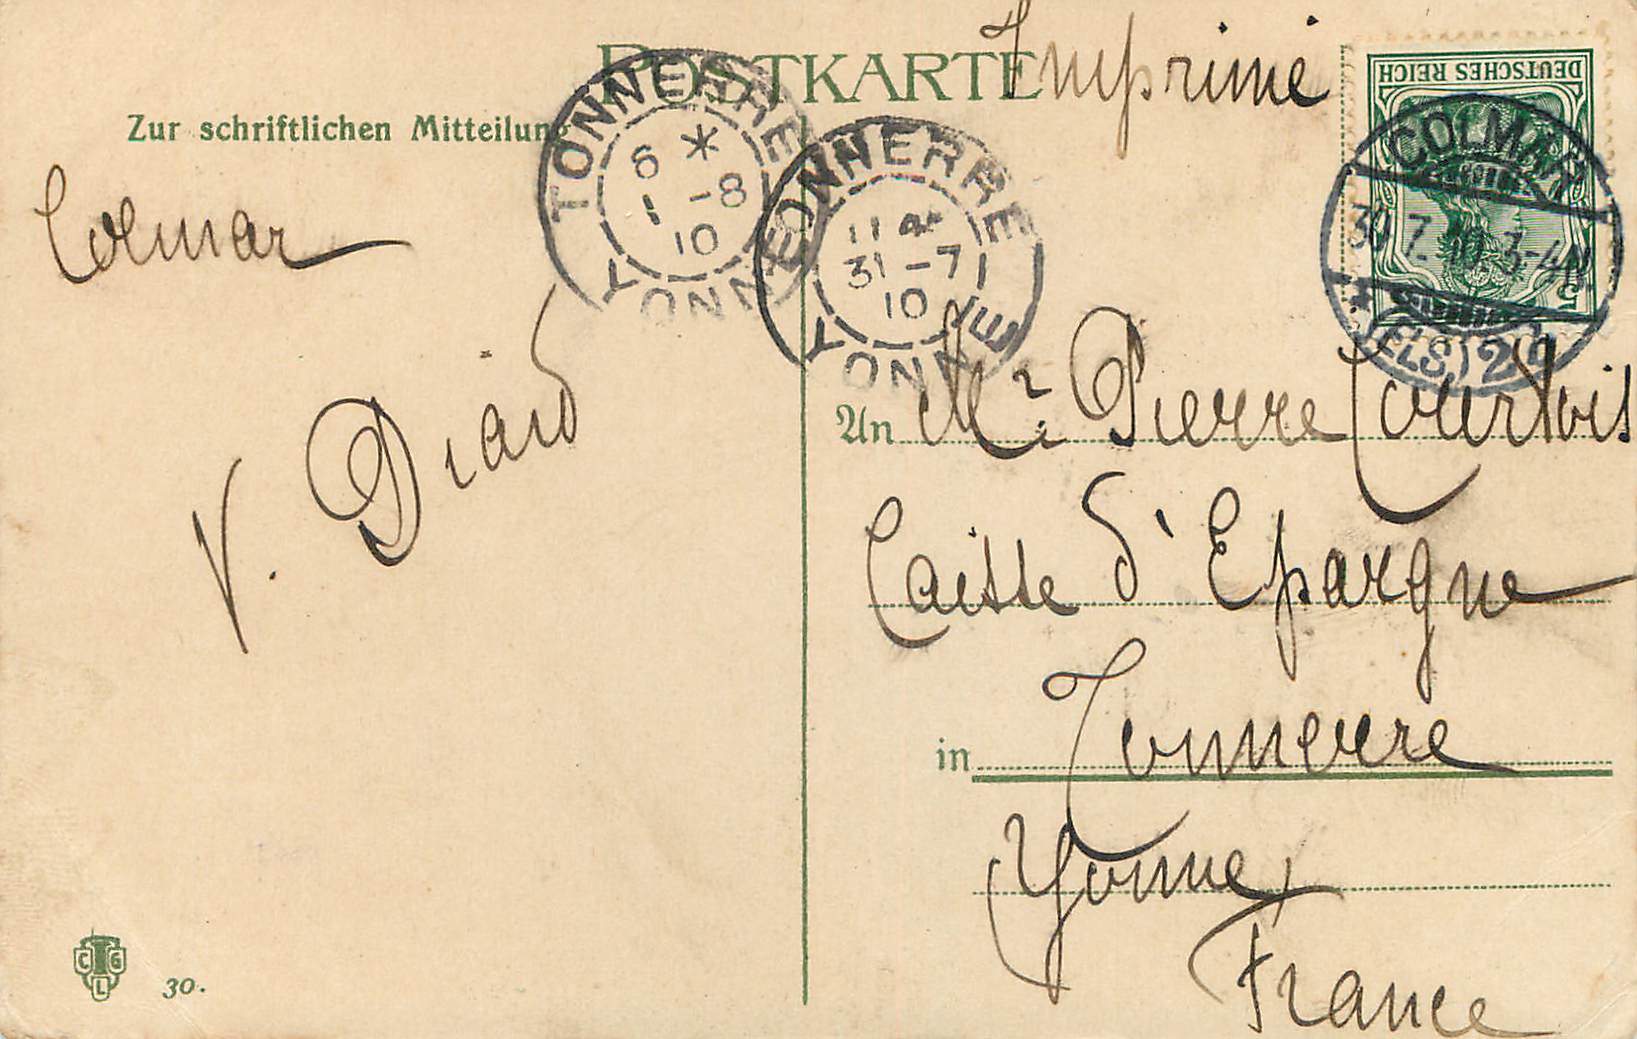 POSTKARTE
Imprimé
Zur schriftlichen Mitteilung
DEUTSCHES REICH
5
COLMAR
30.7.10.3-4N
(ELS.) 2
TONNERRE
6 *
1 -8
10
YONNE
TONNERRE
11
31 -7
10
YONNE
Colmar
V. Diard
An Mr Pierre Courtois
Caisse d'Epargne
in Tonnerre
Yonne
France
C G L
30.